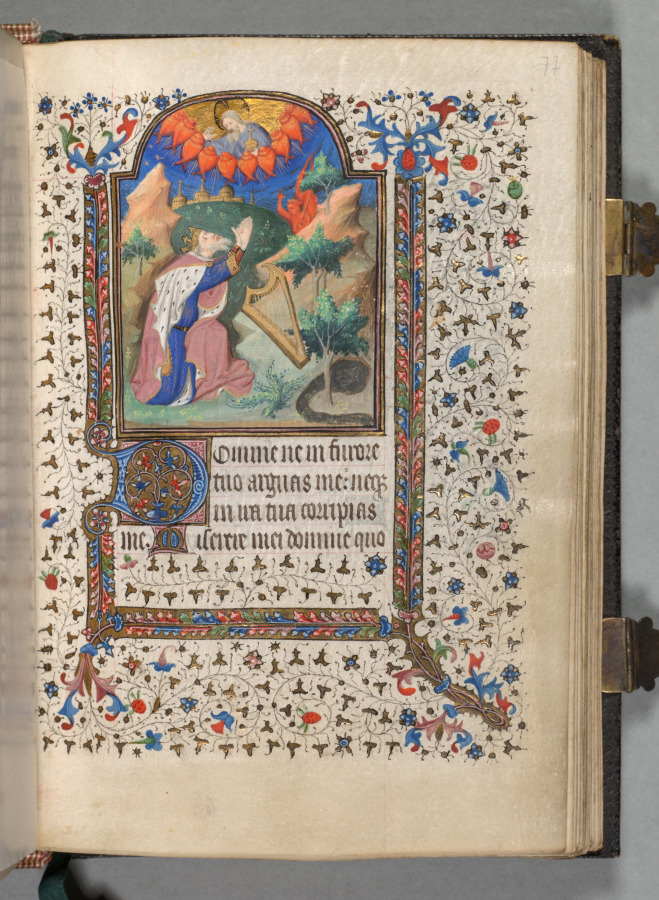 77
Domine ne in furore
tuo arguas me: neqz
in ira tua corripias
me. Miserere mei domine quo